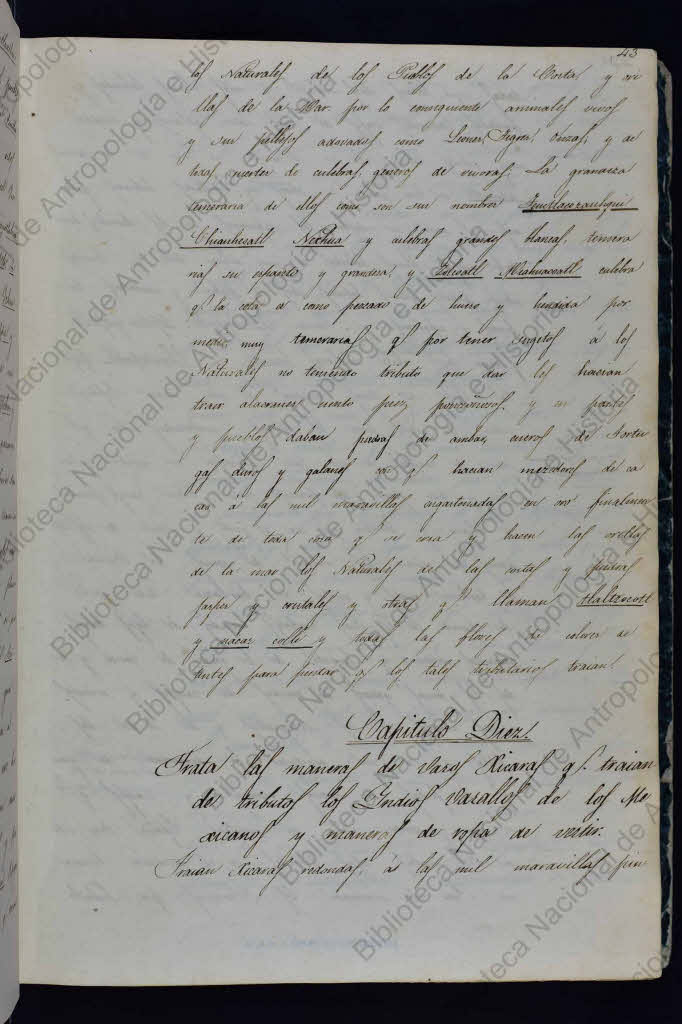 43
los Naturales de los Pueblos de la Costa, y ori
llas de la Mar por lo consiguiente animales vivos
y sus pellejos adovados como Leones, Tigres, Onzas, y de
todas suertes de culebras, generos de vivoras. La grandeza
temeraria de ellos como son sus nombres
Chiauhcoatl Nexhua y culebras grandes blancas, temera
rias su espanto y grandeza, y culebra
qe la cola es como pescado de hueso y hendida por
medio, muy temerarias qe por tener sugetos á los
Naturales no teniendo tributo que dar les hacian
traer alacranes, ciento pies, ponzoñosos, y en partes
y pueblos daban piedras de ambar, cueros de Tortu
gas duros y galanes con qe hacian mecedores de ca
cao á las mil maravillas engastonadas en oro finalmen
te de toda cosa qe se cria y hacen las orillas
de la mar los Naturales de las costas y piedras
jaspes y cristales y otras qe llaman tlaltzocotl
y nacaz colli y todas las flores de colores de
tintes para pintar qe los tales tributarios traian.
Capitulo Diez.
Trata las maneras de Vasos Xicaras qe traian
de tributos los Yndios Vasallos de los Me
xicanos y maneras de ropa de vestir.
Traian Xicaras redondas, á las mil maravillas pin
Biblioteca Nacional de Antropología e Historia